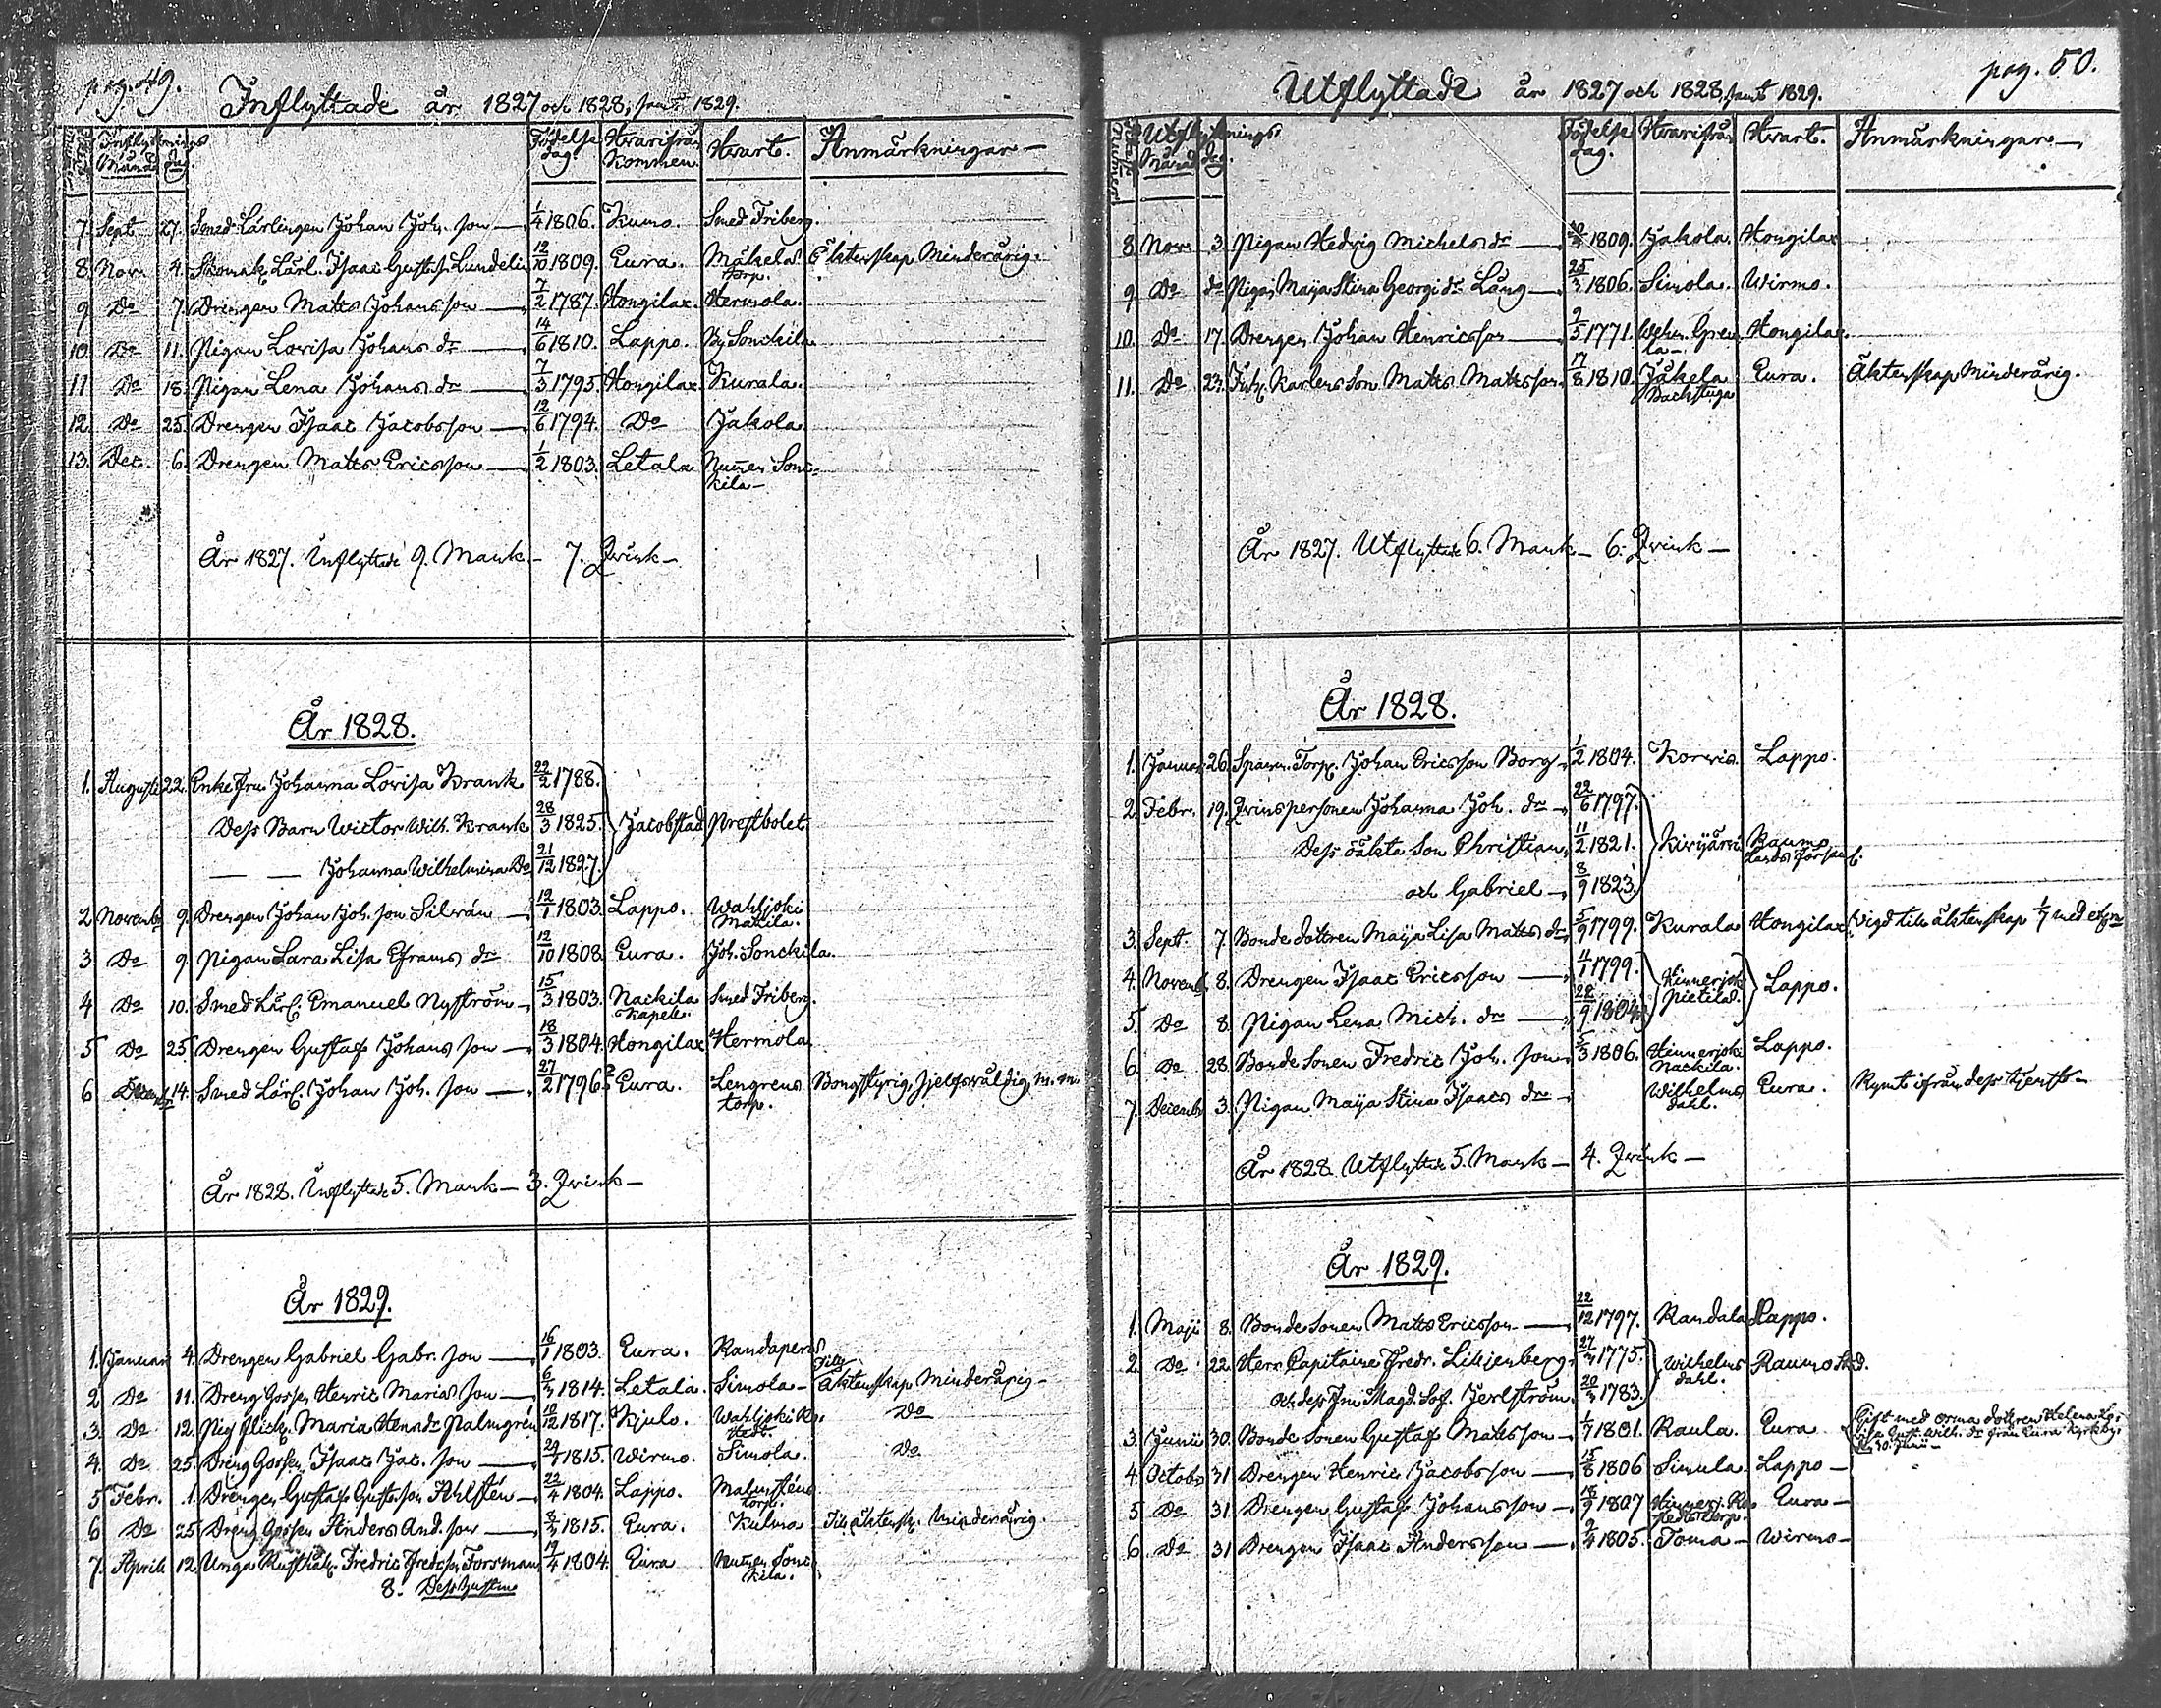 pag. 49.
Inflyttade år 1827 och 1828, samt 1829.
Inflyttnings Månad dag Födelse dag. Hvarifrån Kommen. Hvart. Anmärkningar
7. Sept. 27. Smed Lärlingen Johan Joh. son 1/4 1806. Kumo. Smed Friberg.
8. Nov. 4. Skomak. Lärl. Isaac Gustafs. Lundelin 12/10 1809. Eura. Mäkelä torp. Äktenskap Minderårig.
9 Do 7. Drengen Matts Johansson 7/2 1787. Hongilax. Hermola.
10. Do 11. Pigan Lovisa Johans dr 14/6 1810. Lappo. By Sonckila
11 Do 18. Pigan Lena Johans dr 7/3 1795. Hongilax Kurala.
12. Do 25. Drengen Isaac Jacobsson 12/6 1794. Do Jakola
13. Dec. 6. Drengen Matts Ericsson 1/2 1803. Letala Numen Sonc=
kila
År 1827. Inflyttade 9. Mank. 7. Qvink
År 1828.
1. Augusti 22. Enkefru Johanna Lovisa Krank 22/2 1788.
Dess Barn Victor Wilh. Krank 28/3 1825. Jacobstad Prestbolet
Johanna Wilhelmina Do 21/12 1827.
2 Novemb 9. Drengen Johan Joh. son Silvan 12/1 1803. Lappo. Wahljoki
Makila.
3 Do 9. Pigan Sara Lisa Eframs dr 12/10 1808. Eura. Joh. Sonckila.
4 Do 10. Smed Lärl. Emanuel Nyström 15/3 1803. Nackila Kapell. Smed Friberg.
5 Do 25 Drengen Gustaf Johans son 18/3 1804. Hongilax Hermola
6 Decemb 14. Smed Lärl. Johan Joh. son 27/2 1796. Eura. Lengrens torp. m. m.
År 1828. Inflyttade 5. Mank 3. Qvink
År 1829.
1. Januari 4. Drengen Gabriel Gabr. son 16/1 1803. Eura. Randaperes
2 Do 11. Dreng Gossen Henric Marias son 6/3 1814. Letala. Simola Till Äktenskap Minderårig
3. Do 12. Pig flick. Maria Henr. dr Palmgrén 10/12 1817. Kjulo. Wahljoki Do
4. Do 25. Dreng Gossen Isaac Jac. son 29/1 1815. Wirmo. Simola. Do
5 Febr. 1. Drengen Gustaf Gustafsson Ahlstén 22/4 1804. Lappo. Malmsténs torp.
6 Do 25 Dreng Gossen Anders And. son 1815. Eura. Kulma Till äktensk. Minderårig.
7. April 12. Unga Rusthåll. Fredric Fredrsson Forsman 19/4 1804. Eura Numen Sonc
kila.
8. Dess hustru
pag. 50.
Utflyttade år 1827 och 1828, samt 1829.
Utflyttnings Månad dag. Födelse dag. Hvarifrån Hvart. Anmärkningar
8 Nov. 3. Pigan Hedvig Michels dr 1809. Jakola. Hongilax
9 Do do Pigan Maija Stina Georgi dr Lång 25/3 1806. Simola. Wirmo.
10. Do 17. Drengen Johan Henricsson 2/5 1771. Hongilax.
11. Do 23. Karlens Son Matts Mattsson 17/8 1810. Jåkela Backstuga Eura. Äktenskap Minderårig.
År 1827. Utflyttade 6. Mank 6. Qvink
År 1828.
1. Januar 26. Johan Ericsson Borg 1/2 1804. Korvis. Lappo.
2. Febr. 19. Qvinspersonen Johanna Joh. dr 22/6 1797.
Dess oäkta Son Christian 11/2 1821. Kirjärvi Raumo
Lands Församl.
och Gabriel 8/9 1823.
3. Sept. 7. Bonde dottren Maija Lisa Matts dr 5/9 1799. Kurala Hongilax Vigd till äktenskap 1/7 med
4. Novemb. 8. Drengen Isaac Ericsson 4/1 1799. Hinnerjoki Pietilä. Lappo.
5. Do 8. Pigan Lena Mich. dr 28/9 1804.
6. Do 28. Bonde Sonen Fredric Joh. son 5/3 1806. Hinnerjoki Nackila. Lappo.
7. Decemb 3. Pigan Maija Stina Isaacs dr Wilhelms dahl. Eura. Rymt ifrån dess tjenst
År 1828. Utflyttade 5. Mank 4. Qvink
År 1829.
1. Maji 8. Bonde Sonen Matts Ericsson 22/12 1797. Randala Lappo.
2. Do 22. Herr Capitaine Fredr. Liljenberg 27/3 1775. Wilhelms dahl. Raumo Stad.
och dess Fru Magd. Sof. Jerlström 20/3 1783.
3. Junii 30. Bonde Sonen Gustaf Mattsson 1/7 1801. Raula. Eura Gift med dottren Helena Lo=
visa Gust. Wilh. dr från Eura Kyrkby
30. Junii
4. Octobr 31 Drengen Henric Jacobsson 15/8 1806 Simula. Lappo
5 Do 31 Drengen Gustaf Johansson 18/9 1807 Eura
6. Do 31 Drengen Isaac Andersson 2/4 1805. Toma Wirmo